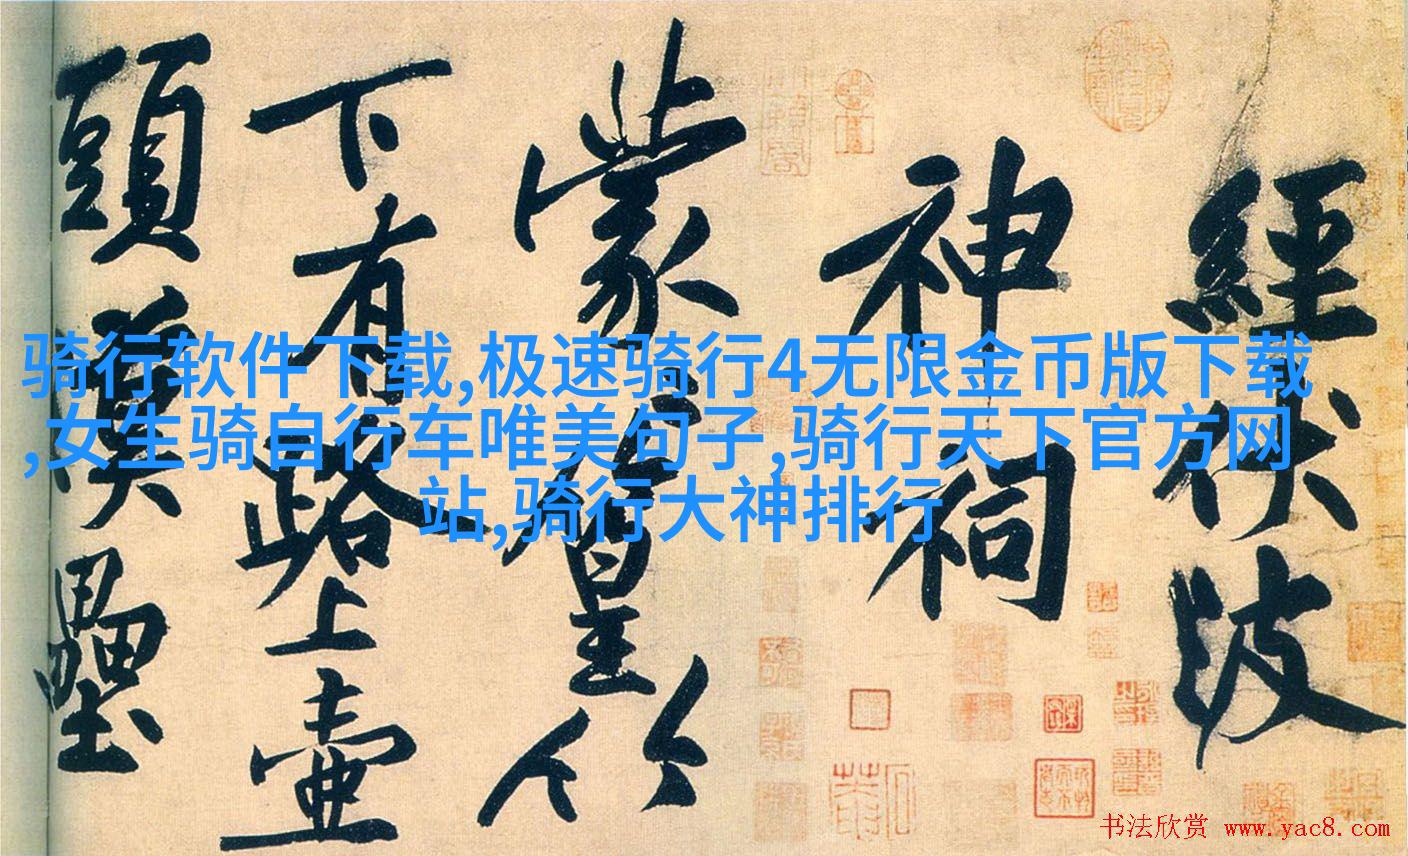 經伏波
神祠
蒙篁竹
下有路上壺
頭漢壘
骑行软件下载,极速骑行4无限金币版下载
,女生骑自行车唯美句子,骑行天下官方网
站,骑行大神排行
书法欣赏 www.yac8.com